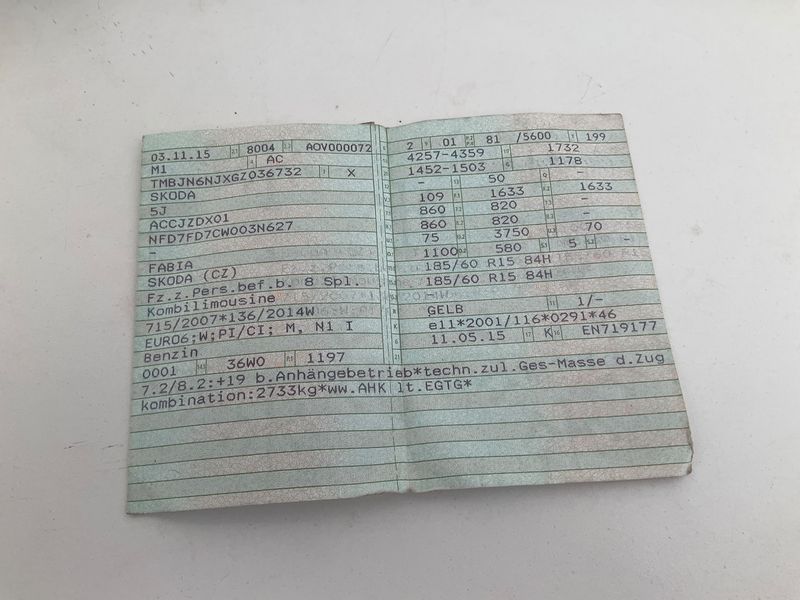 03.11.15 8004 AOV000072
M1 AC
TMBJN6NJXGZ036732 X
SKODA
5J
ACCJZDX01
NFD7FD7CW003N627
-
FABIA
SKODA (CZ)
Fz.z.Pers.bef.b. 8 Spl.
Kombilimousine
715/2007*136/2014W
EURO6;W;PI/CI; M, N1 I
Benzin
0001 36W0 1197
2 01 81 /5600 199
4257-4359 1732
1452-1503 1178
- 50 -
109 1633 1633
860 820 -
860 820 -
75 3750 70
1100 580 5 -
185/60 R15 84H
185/60 R15 84H
-
GELB 1/-
e11*2001/116*0291*46
11.05.15 K EN719177
7.2/8.2:+19 b.Anhängebetrieb*techn.zul.Ges-Masse d.Zug
kombination:2733kg*ww.AHK lt.EGTG*